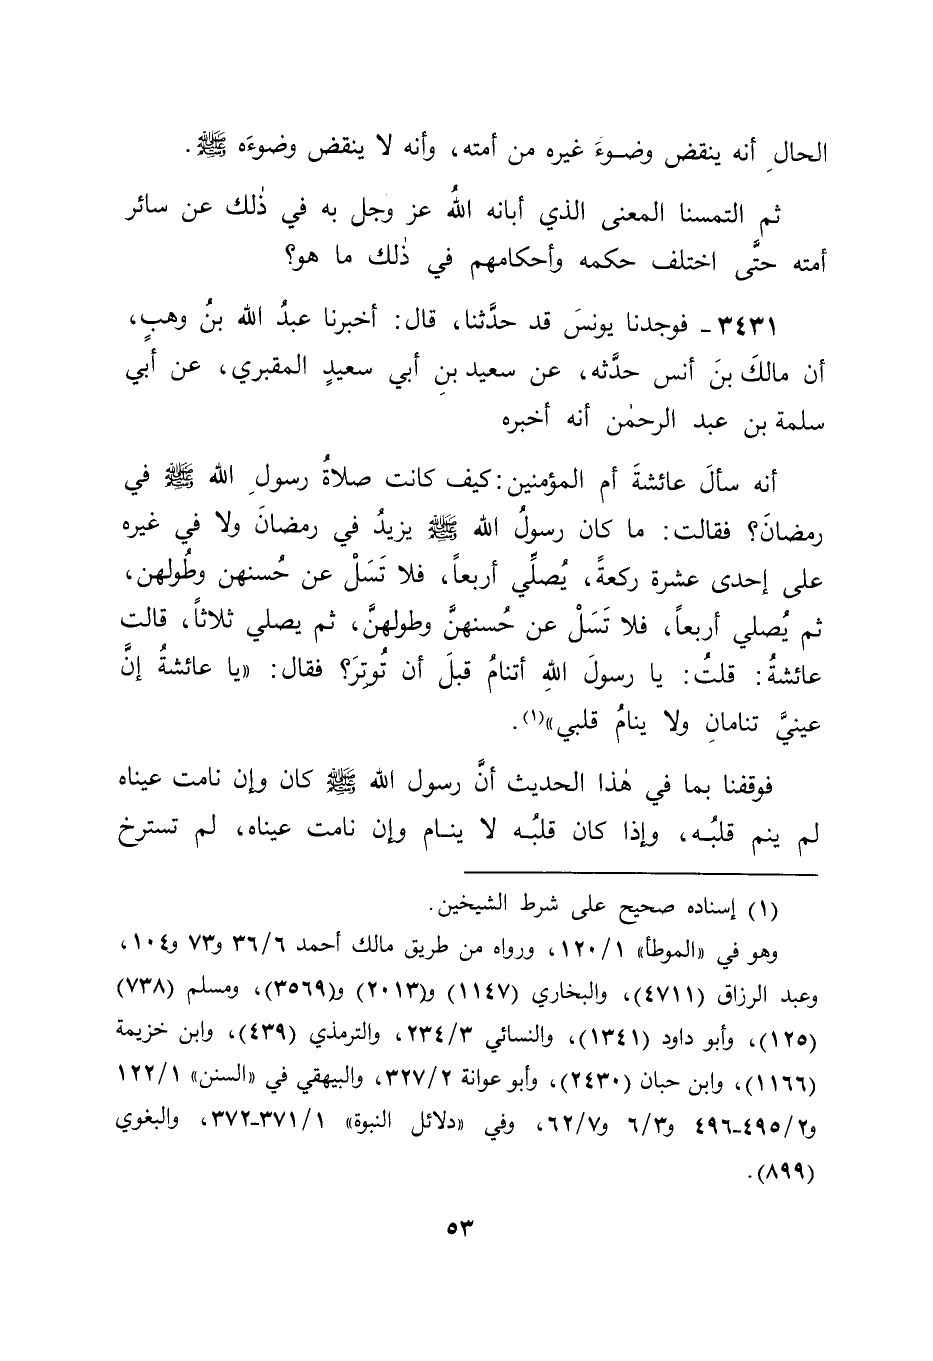 الحالِ أنه ينقض وضوءَ غيره من أمته، وأنه لا ينقض وضوءَه ﷺ.
ثم التمسنا المعنى الذي أبانه اللهُ عز وجل به في ذٰلك عن سائر
أمته حتَّى اختلف حكمه وأحكامهم في ذٰلك ما هو؟
٣٤٣١ - فوجدنا يونسَ قد حدَّثنا، قال: أخبرنا عبدُ الله بنُ وهبٍ،
أن مالكَ بنَ أنس حدَّثه، عن سعيد بنِ أبي سعيدٍ المقبري، عن أبي
سلمة بن عبد الرحمٰن أنه أخبره
أنه سألَ عائشةَ أم المؤمنين: كيف كانت صلاةُ رسولِ الله ﷺ في
رمضانَ؟ فقالت: ما كان رسولُ الله ﷺ يزيدُ في رمضانَ ولا في غيره
على إحدى عشرة ركعةً، يُصلِّي أربعاً، فلا تَسَلْ عن حُسنهن وطُولهن،
ثم يُصلي أربعاً، فلا تَسَلْ عن حُسنهنَّ وطولهنَّ، ثم يصلي ثلاثاً، قالت
عائشةُ: قلتُ: يا رسولَ اللهِ أتنامُ قبلَ أن تُوتِرَ؟ فقال: «يا عائشةُ إنَّ
عينيَّ تنامانِ ولا ينامُ قلبي»(١).
فوقفنا بما في هٰذا الحديث أنَّ رسول الله ﷺ كان وإن نامت عيناه
لم ينم قلبُه، وإذا كان قلبُه لا ينام وإن نامت عيناه، لم تسترخ
(١) إسناده صحيح على شرط الشيخين.
وهو في «الموطأ» ١٢٠/١، ورواه من طريق مالك أحمد ٣٦/٦ و٧٣ و١٠٤،
وعبد الرزاق (٤٧١١)، والبخاري (١١٤٧) و(٢٠١٣) و(٣٥٦٩)، ومسلم (٧٣٨)
(١٢٥)، وأبو داود (١٣٤١)، والنسائي ٢٣٤/٣، والترمذي (٤٣٩)، وابن خزيمة
(١١٦٦)، وابن حبان (٢٤٣٠)، وأبو عوانة ٣٢٧/٢، والبيهقي في «السنن» ١٢٢/١
و٤٩٥/٢-٤٩٦ و٦/٣ و٦٢/٧، وفي «دلائل النبوة» ٣٧١/١-٣٧٢، والبغوي
(٨٩٩).
٥٣